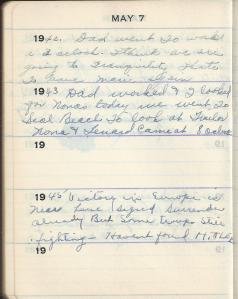 MAY 7
1942. Dad went to work
2 oclock. I think we are
going to
to have more
1943 Dad worked & I looked
for Nona today we went to
Seal Beach to look at Trailer
Nona & Lenard came at 8 oclock
19
1945 Victory in Europe is
near have signed Surrender
already But Some troops still
fighting - Havent found
19